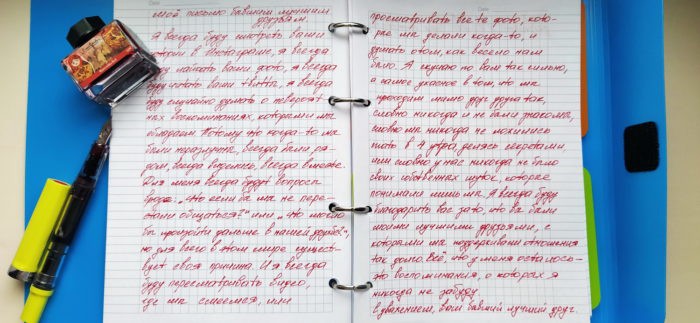 Моё письмо бывшим лучшим
друзьям.
Я всегда буду смотреть ваши
истории в Инстаграме, я всегда
буду лайкать ваши фото, я всегда
буду читать ваши твитты, я всегда
буду случайно думать о невероят-
ных воспоминаниях, которыми мы
обладаем. Потому что когда-то мы
были неразлучны, всегда были ря-
дом, всегда виделись, всегда вместе.
Для меня всегда будут вопросы
вроде: „Что если бы мы не пере-
стали общаться?" или „Что могло
бы произойти дальше в нашей дружбе?",
но для всего в этом мире сущест-
вует своя причина. И я всегда
буду пересматривать видео,
где мы смеемся, или
просматривать все те фото, кото-
рые мы делали когда-то, и
думать о том, как весело нам
было. Я скучаю по вам так сильно,
а самое ужасное в том, что мы
проходим мимо друг друга так,
словно никогда и не были знакомы,
словно мы никогда не ложились
спать в 4 утра, делясь секретами,
или словно у нас никогда не было
своих собственных шуток, которые
понимали лишь мы. Я всегда буду
благодарить вас за то, что вы были
моими лучшими друзьями, с
которыми мы поддерживали отношения
так долго. Всё, что у меня осталось -
это воспоминания, о которых я
никогда не забуду.
С уважением, ваш бывший лучший друг.